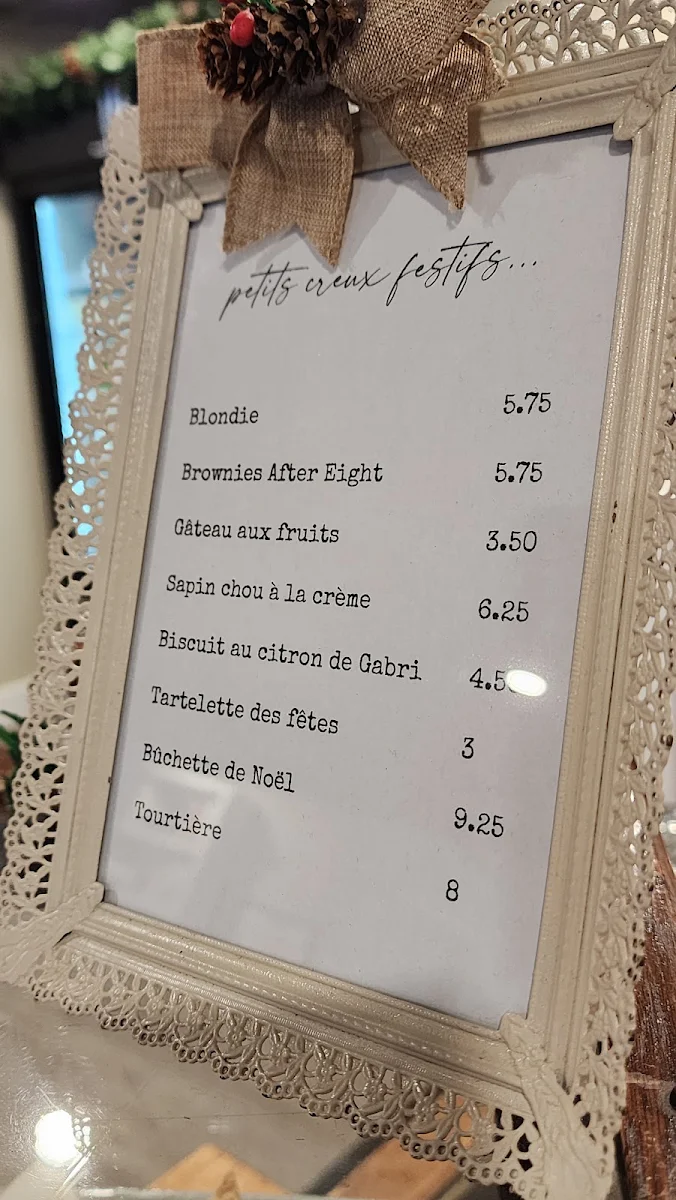 petits creux festifs...
Blondie 5.75
Brownies After Eight 5.75
Gâteau aux fruits 3.50
Sapin chou à la crème 6.25
Biscuit au citron de Gabri
Tartelette des fêtes 3
Bûchette de Noël 9.25
Tourtière 8